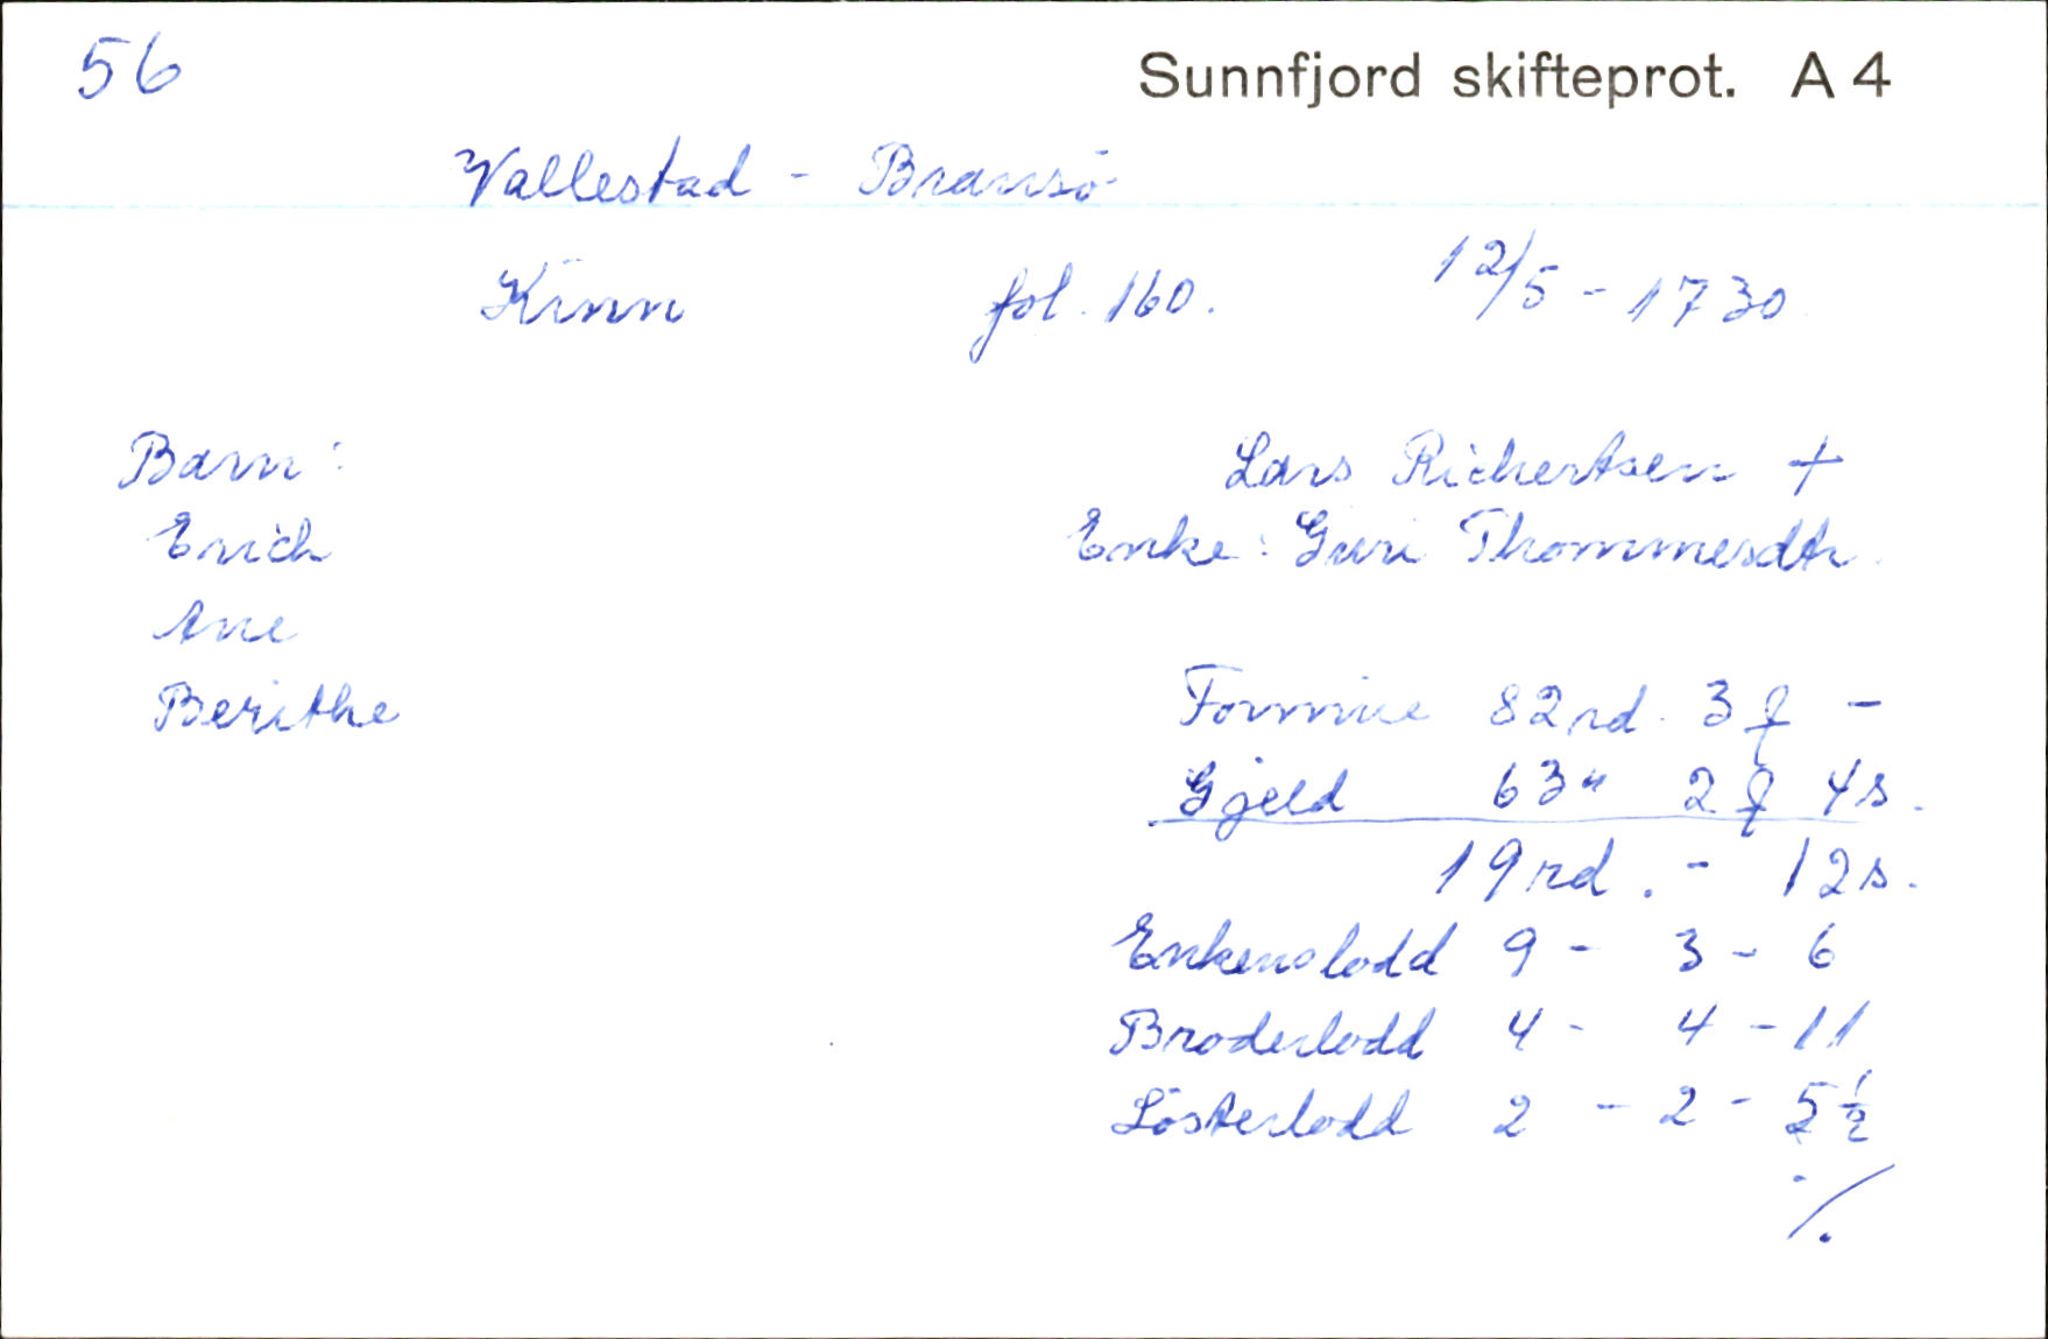 56
Sunnfjord skifteprot. A 4
Vallestad - Bransö
Kinn fol. 160. 12/5 - 1730
Barn: Lars Richertsen +
Erich Enke: Guri Thommesdtr.
Ane
Berithe Formue 82 rd. 3 f -
Gjeld 63 " 2 f 4 s.
19 rd. - 12 s.
Enkens lodd 9 - 3 - 6
Broderlodd 4 - 4 - 11
Sösterlodd 2 - 2 - 5 ½
./.